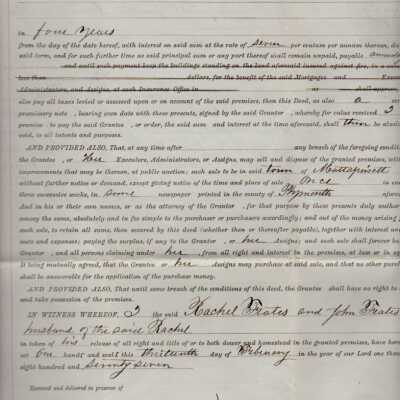 in four years
from the day of the date hereof, with interest on said sum at the rate of seven per centum per annum thereon, du
said term, and for such further time as said principal sum or any part thereof shall remain unpaid, payable
and until such payment keep the buildings standing on the land aforesaid insured against fire, in a sum
less than dollars, for the benefit of the said Mortgagee and Exec
Administrators, and Assigns, at such Insurance Office in as shall approve,
also pay all taxes levied or assessed upon or on account of the said premises, then this Deed, as also a cer
promissory note, bearing even date with these presents, signed by the said Grantor, whereby for value received I
promise to pay the said Grantee, or order, the said sum and interest at the time aforesaid, shall then be absolu
void, to all intents and purposes.
AND PROVIDED ALSO, That, at any time after any breach of the foregoing conditi
the Grantee, or Her Executors, Administrators, or Assigns, may sell and dispose of the granted premises, with
improvements that may be thereon, at public auction; such sale to be in said town of Mattapoisett
without further notice or demand, except giving notice of the time and place of sale Once in e
three successive weeks, in some newspaper printed in the county of Plymouth
And in his or their own names, or as the attorney of the Grantor, for that purpose by these presents duly author
convey the same, absolutely and in fee simple to the purchaser or purchasers accordingly; and out of the money arising
such sale, to retain all sums, then secured by this deed (whether then or thereafter payable), together with interest and
costs and expenses; paying the surplus, if any to the Grantor, or her Assigns; and such sale shall forever ba
Grantor, and all persons claiming under her, from all right and interest in the premises, at law or in eq
It being mutually agreed, that the Grantee or her Assigns may purchase at said sale, and that no other purch
shall be answerable for the application of the purchase money.
AND PROVIDED ALSO, That until some breach of the conditions of this deed, the Grantee shall have no right to
and take possession of the premises.
IN WITNESS WHEREOF, I the said Rachel Frates and John Frates
husband of the said Rachel
in token of his release of all right and title of or to both dower and homestead in the granted premises, have here
set our hands and seals this thirteenth day of February in the year of our Lord one thous
eight hundred and seventy seven
Executed and delivered in presence of